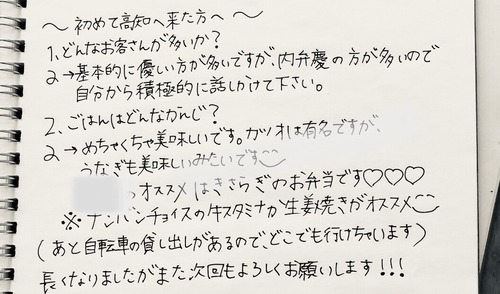 〜初めて高知へ来た方へ〜
1、どんなお客さんが多いか？
2→基本的に優しい方が多いですが、内弁慶の方が多いので
自分から積極的に話しかけて下さい。
2、ごはんはどんなかんじ？
2→めちゃくちゃ美味しいです。カツオは有名ですが、
うなぎも美味しいみたいです
オススメはきさらぎのお弁当です♡♡♡
※ナンバンチョイスの牛スタミナか生姜焼きがオススメ
(あと自転車の貸し出しがあるので、どこでも行けちゃいます)
長くなりましたがまた次回もよろしくお願いします!!!